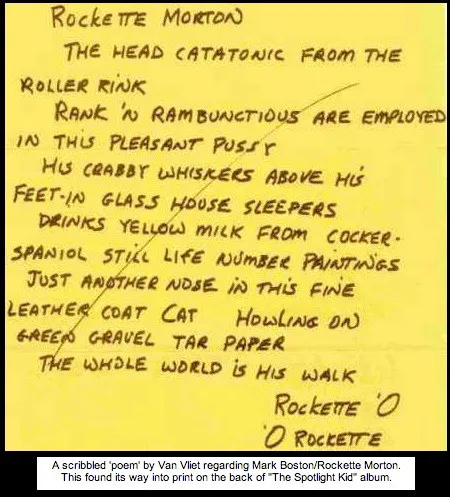 Rockette Morton
The head catatonic from the
roller rink
Rank 'n rambunctious are employed
in this pleasant pussy
His crabby whiskers above his
feet-in glass house sleepers
Drinks yellow milk from cocker-
spaniol still life number paintings
Just another nose in this fine
leather coat cat howling on
green gravel tar paper
The whole world is his walk
Rockette 'O
'O Rockette
A scribbled 'poem' by Van Vliet regarding Mark Boston/Rockette Morton.
This found its way into print on the back of "The Spotlight Kid" album.